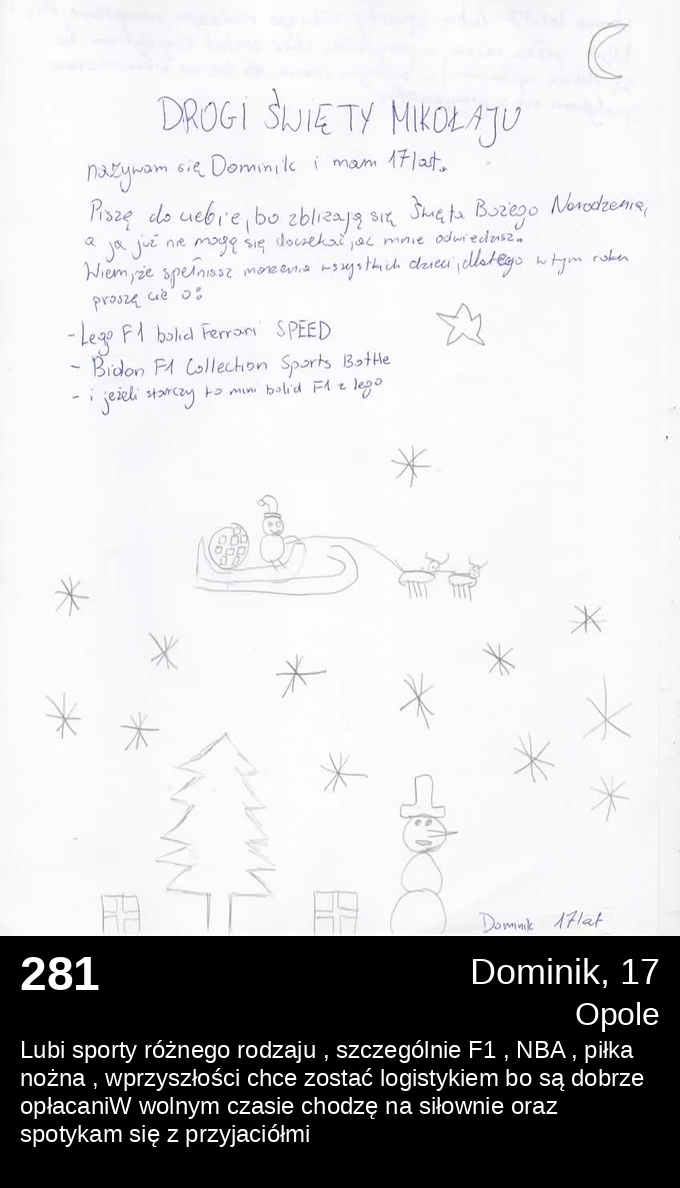 DROGI ŚWIĘTY MIKOŁAJU
nazywam się Dominik i mam 17lat.
Piszę do ciebie, bo zbliżają się Święta Bożego Narodzenia,
a ja już nie mogę się doczekać, aż mnie odwiedzisz.
Wiem, że spełniasz marzenia wszystkich dzieci, dlatego w tym roku
proszę cię o:
- Lego F1 bolid Ferrari SPEED
- Bidon F1 Collection Sports Bottle
- i jeżeli starczy to mini bolid F1 z lego
Dominik 17lat
281
Dominik, 17
Opole
Lubi sporty różnego rodzaju , szczególnie F1 , NBA , piłka
nożna , wprzyszłości chce zostać logistykiem bo są dobrze
opłacaniW wolnym czasie chodzę na siłownie oraz
spotykam się z przyjaciółmi